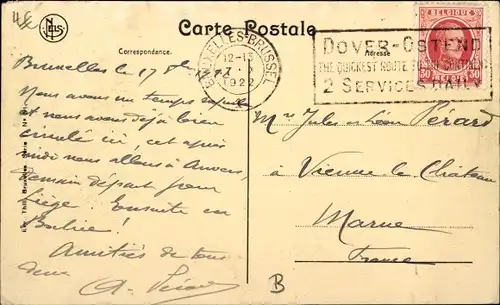 Carte Postale
Correspondance.
Adresse
BELGIQUE
30 30
BRUXELLES-BRUSSEL
12-13
1922
DOVER-OSTEND
THE QUICKEST ROUTE TO
2 SERVICES DAILY
Bruxelles le 17 1922
Nous avons un temps superbe
et nous avons déjà bien
circulé ici, cet après
midi nous allons à Anvers,
Demain départ pour
Liège. Ensuite en
Amitiés de tous
deux
Mrs Jules et Léon Pérard
à Vienne le Château
Marne
France
B